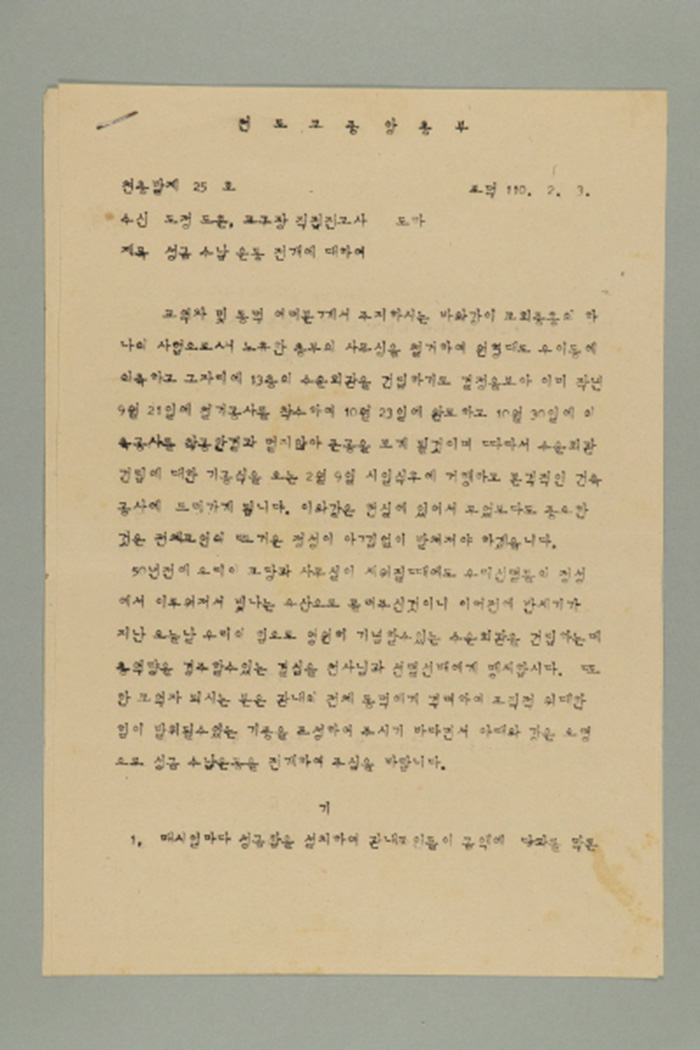 천 도 교 중 앙 총 부
천총발제 25 호 포덕 110. 2. 3.
수신 도정 도훈, 교구장 직접전교사
제목 성금 수납 운동 전개에 대하여
교역자 및 동덕 여러분께서 주지하시는 바와같이 교회중흥의 하
나의 사업으로서 노후한 총부의 사무실을 철거하여 원형대로 우이동에
이축하고 그자리에 13층의 수운회관을 건립하기로 결정을보아 이미 작년
9월 21일에 철거공사를 착수하여 10월 23일에 완료하고 10월 30일에 이
축공사를 착공한결과 멀지않아 준공을 보게 될것이며 따라서 수운회관
건립에 대한 기공식을 오는 2월 9일 시일식후에 거행하고 본격적인 건축
공사에 드러가게 됩니다. 이와같은 현실에 있어서 무엇보다도 중요한
것은 전체교인의 뜨거운 정성이 아낌없이 발쳐져야 하겠읍니다.
50년전에 우리의 교당과 사무실이 세워질때에도 우리선열들의 정성
에서 이루워져서 빛나는 유산으로 물려주신것이니 이어전에 반세기가
지난 오늘날 우리의 힘으로 영원히 기념할수있는 수운회관을 건립하는데
총역량을 경주할수있는 결심을 천사님과 선열선배에게 맹서합시다. 또
한 교역자 되시는 분은 관내의 전체 동덕에게 격려하여 조직적 위대한
힘이 발휘될수있는 기풍을 조성하여 주시기 바라면서 아래와 같은 요령
으로 성금 수납운동을 전개하여 주심을 바랍니다.
기
1. 매시일마다 성금함을 설치하여 관내교인들이 금액에 다과를 막론